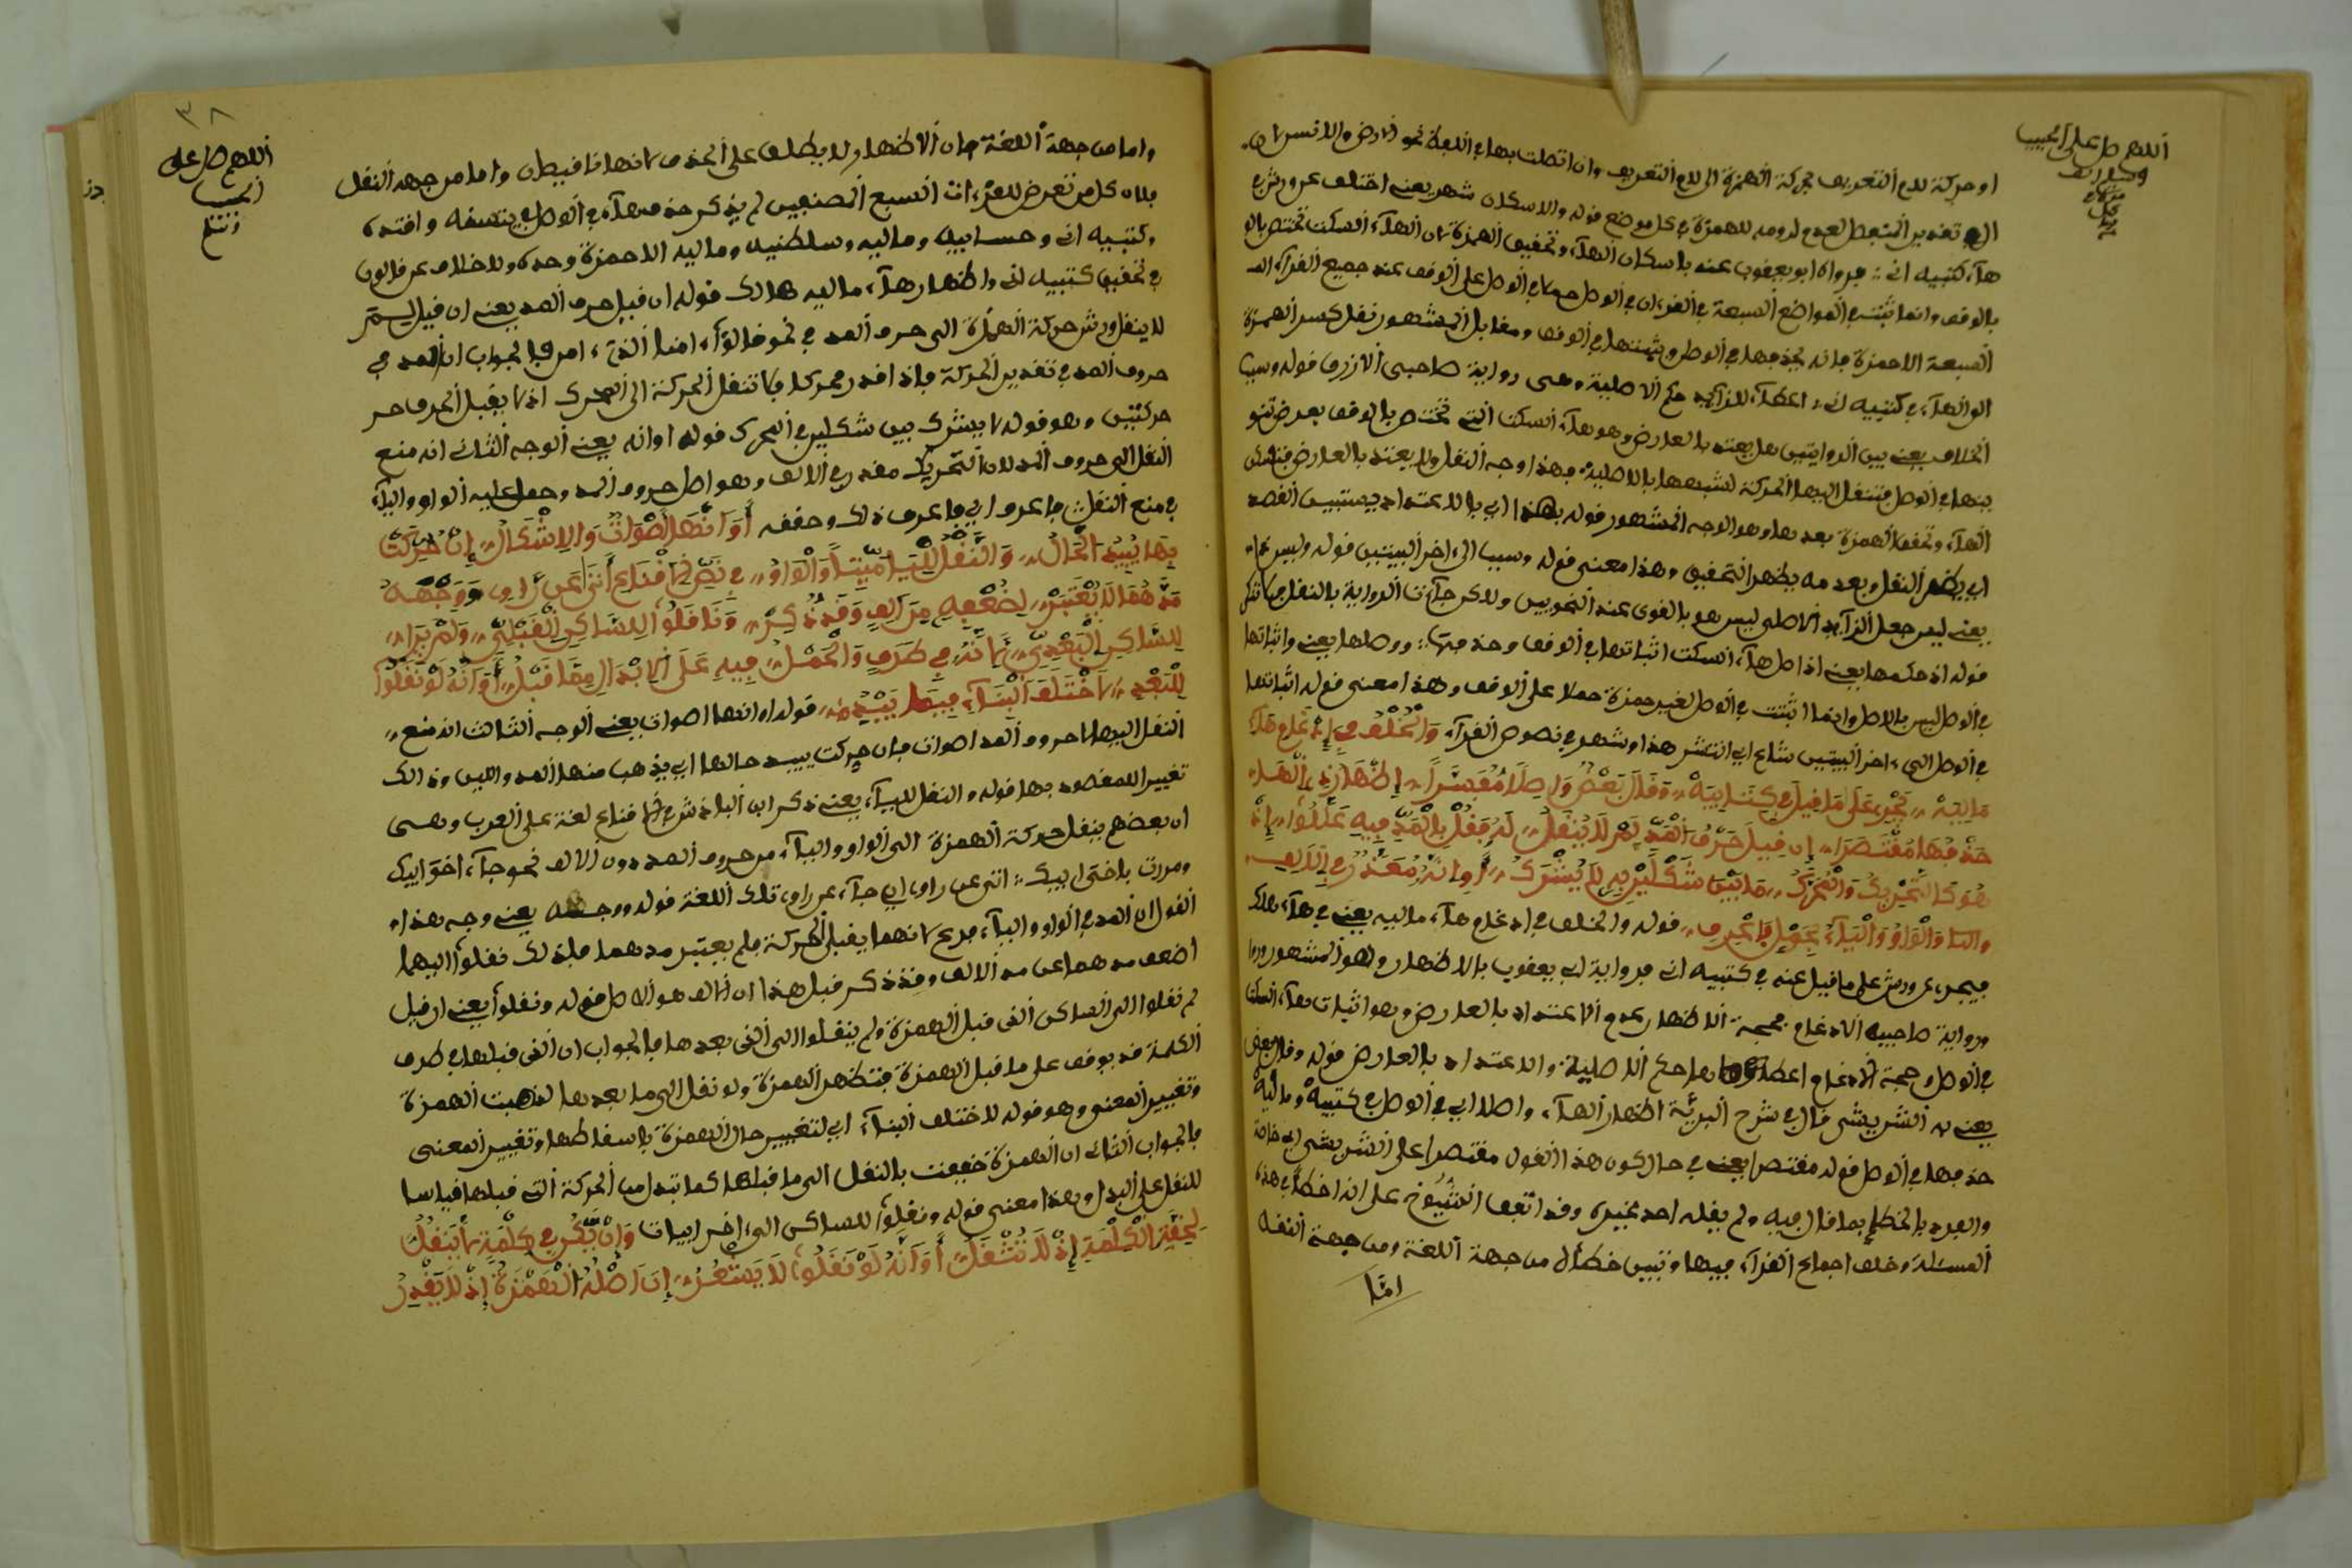 اللهم صل على الحبيب
او حركة لام التعريف بحركة الهمزة الى لام التعريف وان اتصلت بها في اللفظ نحو الارض والانسان
تقدير المنفصل لعدم لزومه للهمزة في كل موضع قوله والاسكان شهر يعني اختلف عن ورش في
هاء كتبيه اني فرواه ابو يعقوب عنه باسكان الهاء وتحقيق الهمزة لان الهاء السكت تختص بالو
بالوقف وانما تثبت في المواضع السبعة في القرءان في الوصل حملا في الوصل على الوقف عند جميع القراء
السبعة الا حمزة فانه يحذفها في الوصل ويثبتها في الوقف ومقابل المشهور نقل كسر الهمزة
الى الهاء في كتبيه اني اعطاء للزايد حكم الاصلية وهي رواية صاحبي الازرق قوله وسبب
الخلاف يعني بين الروايتين هل يعتد بالعارض وهو هاء السكت التي تختص بالوقف بعرض ثبو
بتها في الوصل فتنقل اليها الحركة لشبهها بالاصلية فهذا وجه النقل ولا يعتد بالعارض فتسكن
الهاء وتحقق الهمزة بعدها وهو الوجه المشهور قوله بهذا اي بالاعتداد يستبين القصد
اي يظهر النقل وبعدمه يظهر التحقيق وهذا معنى قوله وسبب الى اخر البيتين قوله وليس جاء
يعني ليس جعل الزايد كالاصلي ليس هو بالقوى عند النحويين ولاكن جاءت الرواية بالنقل فلا تنكر
قوله اذ حكمها يعني اذ اصل هاء السكت اثباتها في الوقف وحذفها ووصلها يعني واثباتها
في الوصل ليس بالاصل وانما اثبتت في الوصل لغير حمزة حملا على الوقف وهذا معنى قوله اثباتها
في الوصل الى ءاخر البيتين شاع اي انتشر هذا وشهر في نصوص القراء وَالْخُلْفُ فِي إِدْغَامِ هَاءِ
مَالِيَهْ يَجْرِي عَلَى مَا قِيلَ فِي كِتَابِيَهْ وَقَالَ بَعْضٌ وَاصِلًا مُقْتَصِرًا إِظْهَارُهُ الْهَاءَ
حَذْفُهَا مُقْتَصَرَا إِن قِيلَ حَرْفُ الْمَدِّ لِمْ لَا يُنْقَلُ لَهُ فَقُلْ بِالْمَدِّ فِيهِ عَلَّلُوا إِذْ
هُوَ كَالتَّحْرِيكِ وَالْمُحَرَّكُ مَا بَيْنَ شَكْلَيْنِ بِهِ لَا يُشْرَكُ أَوِ انَّهُ مُقَدَّرٌ فِي الْأَلِفِ
وَالْوَاوُ وَالْيَاءُ
قوله والخلف في ادغام هاء ماليه يعني في هاء هلك
فيجري عن ورش على ما قيل عنه في كتبيه اني فرواية ابي يعقوب بالاظهار وهو المشهور
ورواية صاحبيه الادغام فحجة الاظهار عدم الاعتداد بالعارض وهو اثبات هاء السكت
في الوصل وحجة الادغام اعطاؤها حكم الاصلية والاعتداد بالعارض قوله وقال بعض
يعني به الشريشي قال في شرح البرية اظهار الهاء واصلا اي في الوصل في كتبيه وماليه
حذفها في الوصل قوله مقتصرا يعني في حال كون هذا القول مقتصرا على الشريشي اي خاصة
والفرد بالخطإ بما قال فيه ولم يقله احد غيره وقد اتفق الشيوخ على انه اخطأ في هذه
المسئلة وخلف اجماع القراء فيها وتبين خطأه من جهة اللغة ومن جهة النقل
امّا
٣٨
اللهم صل على
الحبيب
واما من جهة اللغة فان الاظهار لا يطلق على الحذف لانهما نقيضان واما من جهة النقل
فلان كل من تعرض للقراءات السبع المصنفين لم يذكر حذف هاء في الوصل في يتسنه واقتده
وكتبيه اني وحسابيه وماليه وسلطنيه وماهيه الا حمزة وحده ولا خلاف عن قالون
في تحقيق كتبيه اني واظهار هاء ماليه هلك قوله ان قيل حرف المد يعني ان قيل لم
لا ينقل ورش حركة الهمزة الى حرف المد في نحو قالوا ءامنا الذي ءامن فالجواب ان المد في
حروف المد في تقدير الحركة فاذا قدر محركا فلا تنقل الحركة الى المحرك اذ لا يقبل الحرف حر
حركتين وهو قوله لا يشرك بين شكلين في المحرك قوله او انه يعني الوجه الثاني انه منع
النقل الى حروف المد لان التحريك مقدر في الالف وهو اصل حروف المد وحمل عليه الواو والياء
في منع النقل فاعرف اي فاعرف ذلك وحققه أَوَ انَّهَا أَصْوَاتٌ وَالإِشْكَالُ إِنْ حُرِّكَتْ
بِهَا يُبِيدُ الْحَالُ وَالنَّقْلُ لِلْيَا مَيِّتًا وَالْوَاوُ فِي نَصِّ الْإِقْنَاعِ أَتَى عَن رَّاوِ وَوَجْهُهُ
مَدُّهُمَا لَا يُعْتَبَرْ لِضُعْفِهِ مِنْ أَلِفٍ وَقَدْ ذُكِرْ وَنَقَلُوا لِلسَّاكِنِ الْقَبْلِيِّ وَلَمْ يَرَا
لِلسَّاكِنِ الْبَعْدِيِّ لِأَنَّهُ فِي طَرَفٍ وَالْحَمْلُ فِيهِ عَلَى الْإِبْدَالِ مِمَّا قَبْلُ أَوَ انَّهُ لَوْ نَقَلُوا
لِلْبَعْدِ لَاخْتَلَفَ الْبِنَاءُ فِيهَا
قوله او انها اصوات يعني الوجه الثالث انه منع
النقل اليها لان حروف المد اصوات فان حركت يبيد حالها اي يذهب منها المد واللين وذالك
تغيير للمقصود بها قوله والنقل للياء يعني ذكر ابن الباذش في الاقناع لغة على العرب وهي
ان بعضهم ينقل حركة الهمزة الى الواو والياء من حروف المد دون الالف نحو جاء اخو ابيك
ومررت باخي ابيك اتى عن راو اي جاء عن راو تلك اللغة قوله ووجهه يعني وجه هذا
القول ان المد في الواو والياء فرع لانهما يقبلا الحركة فلم يعتبر مدهما فلذلك نقلوا اليهما
اضعف مدهما عن مد الالف وقد ذكر قبل هذا ان الالف هو الاصل قوله ونقلوا يعني ان قيل
لم نقلوا الى الساكن الذي قبل الهمزة ولم ينقلوا الى الذي بعدها فالجواب ان الذي قبلها في طرف
الكلمة قد يوقف على ما قبل الهمزة فتظهر الهمزة ولو نقل الى ما بعدها لذهبت الهمزة
وتغيير المعنى وهو قوله لاختلف البناء اي لتغيير حال الهمزة باسقاطها وتغيير المعنى
فالجواب الثاني ان الهمزة خففت بالنقل الى ما قبلها كما تبدل من الحركة التي قبلها قياسا
للنقل على البدل وهذا معنى قوله ونقلوا للساكن الى ءاخر ابيات وَإِنْ يَكُنْ فِي كِلْمَةٍ لَا يَنْقُلُ
لِخِفَّةِ الْكِلْمَةِ إِذْ لَا تَثْقُلُ أَوَ انَّهُ لَوْ نَقَلُوا لَا يَشْعُرُ إِنَّ أَصْلَهُ الْهَمْزَةُ إِذْ لَا يُقَدَّرُ